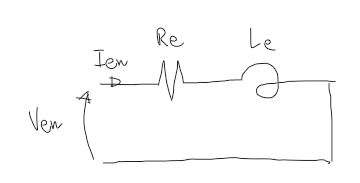 Re
Le
Iem
Vem